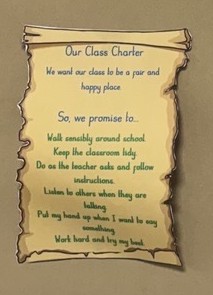 Our Class Charter
We want our class to be a fair and
happy place.
So, we promise to...
Walk sensibly around school.
Keep the classroom tidy.
Do as the teacher asks and follow
instructions.
Listen to others when they are
talking.
Put my hand up when I want to say
something.
Work hard and try my best.